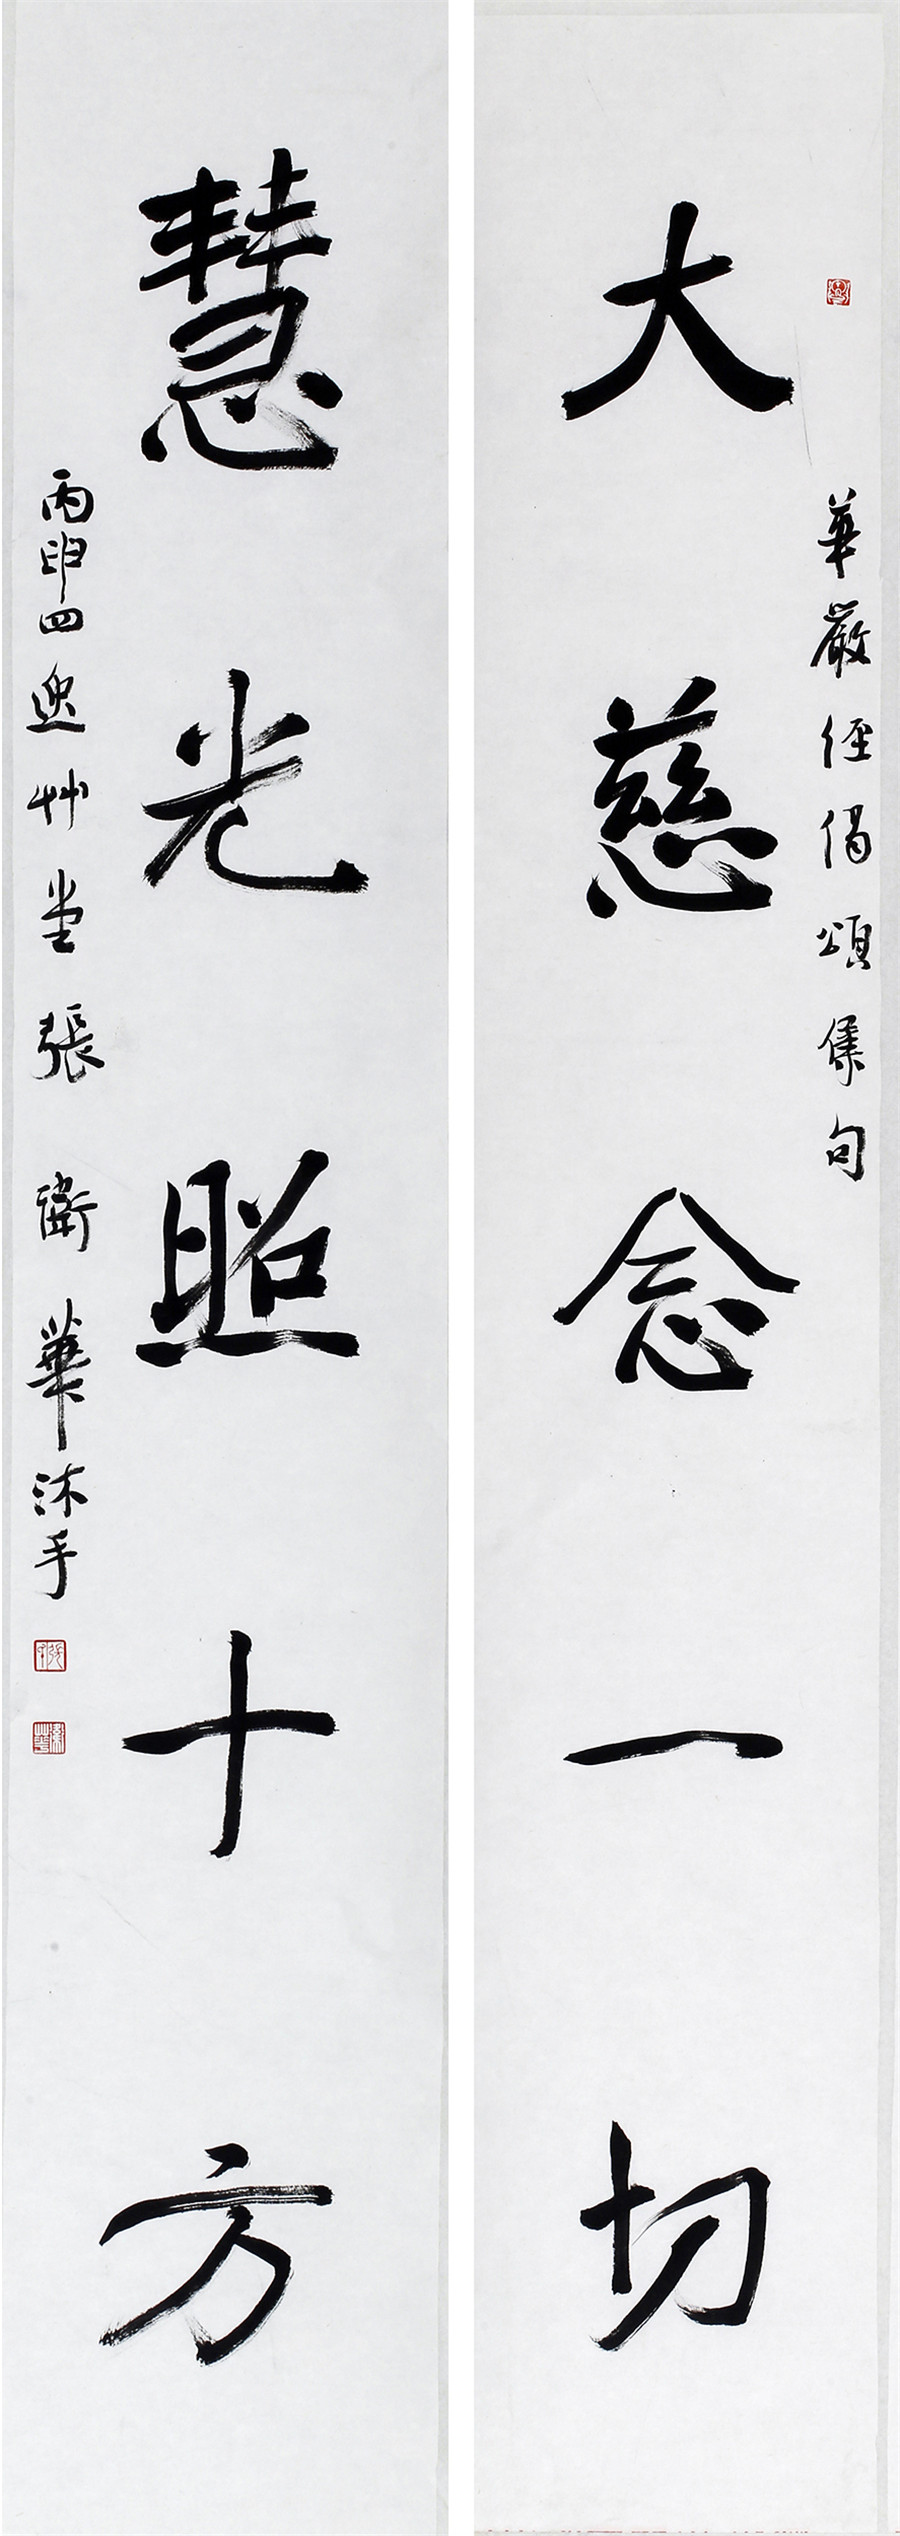 華嚴經偈頌集句
大慈念一切
慧光照十方
丙申四逸艸堂張衛華沐手